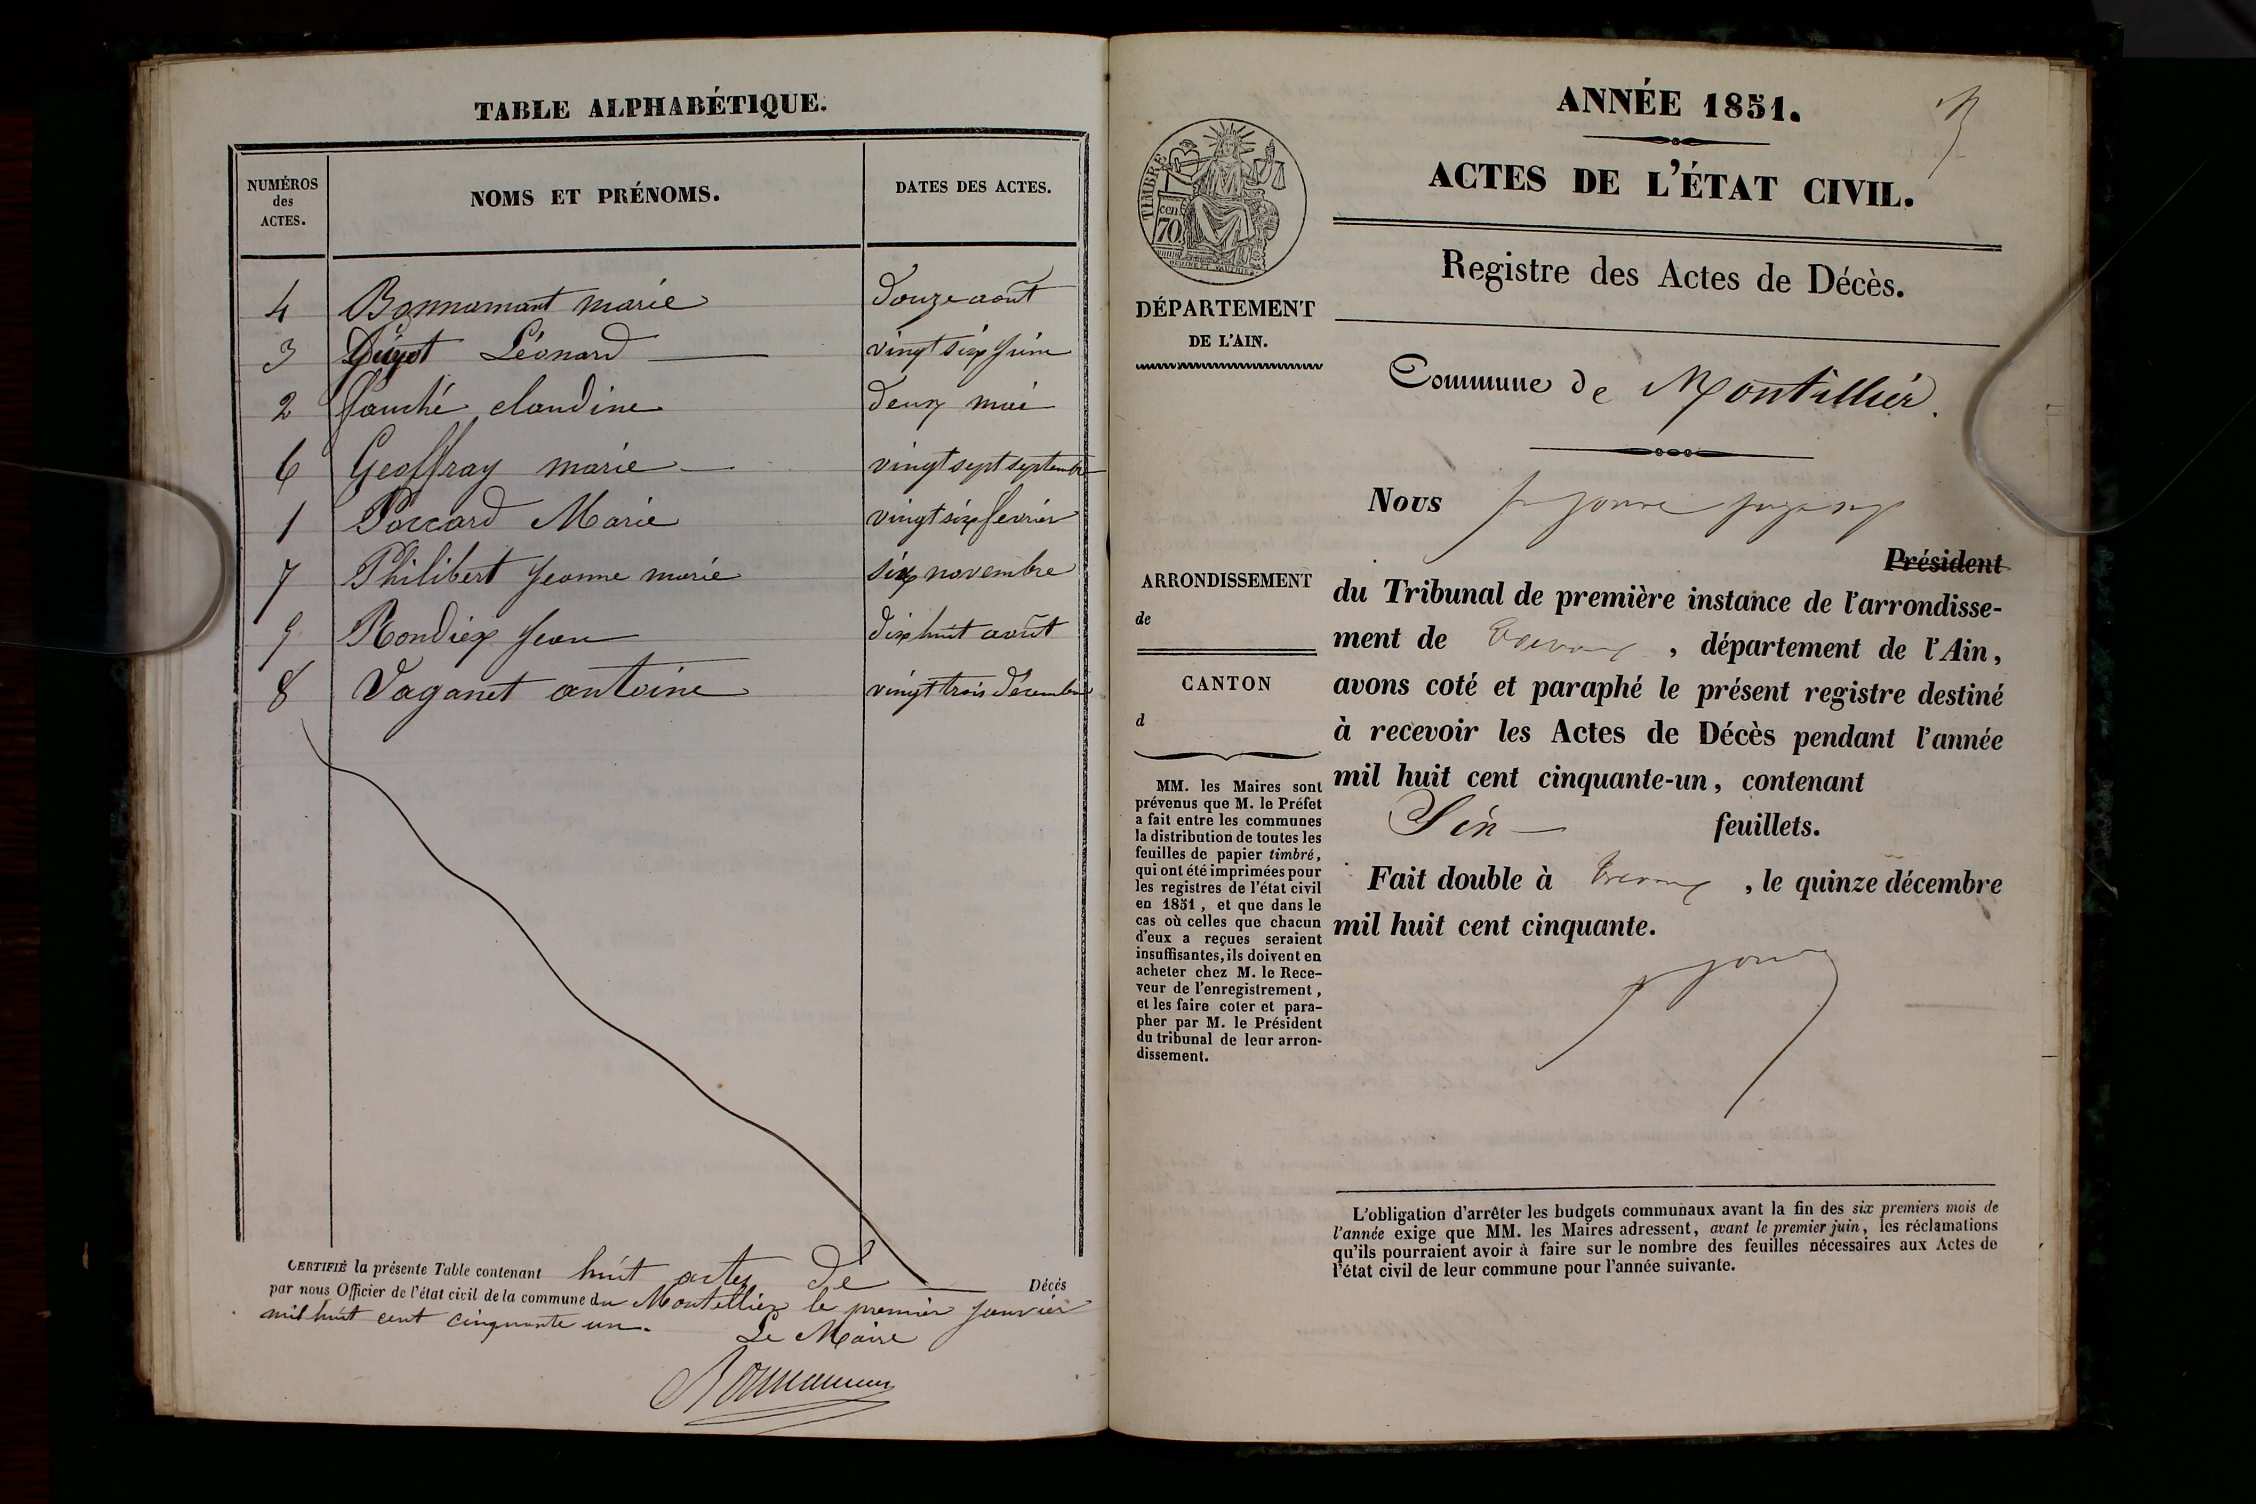 TABLE ALPHABÉTIQUE.
NUMÉROS
des
ACTES.
NOMS ET PRÉNOMS.
DATES DES ACTES.
4 Bonnamant marie douze août
3 Guyot Léonard vingt six Juin
2 fauché claudine deux mai
6 Geoffray marie vingt sept septembre
1 Poccard Marie vingt six fevrier
7 Philibert Jeanne marie six novembre
5 Rondix Jean dix huit août
8 Vaganet antoine vingt trois Décembre
CERTIFIÉ la présente Table contenant huit actes de Décés
par nous Officier de l'état civil de la commune du Montellier le premier Janvier
mil huit cent cinquante un.
Le Maire
ANNÉE 1851.
ACTES DE L'ÉTAT CIVIL.
TIMBRE
cen
70
DÉPARTEMENT
DE L'AIN.
Registre des Actes de Décès.
Commune de Montillier.
Nous
Président
ARRONDISSEMENT
de
CANTON
d
du Tribunal de première instance de l'arrondisse-
ment de Trevoux, département de l'Ain,
avons coté et paraphé le présent registre destiné
à recevoir les Actes de Décès pendant l'année
mil huit cent cinquante-un, contenant
feuillets.
Fait double à Trevoux, le quinze décembre
mil huit cent cinquante.
MM. les Maires sont
prévenus que M. le Préfet
a fait entre les communes
la distribution de toutes les
feuilles de papier timbré,
qui ont été imprimées pour
les registres de l'état civil
en 1851, et que dans le
cas où celles que chacun
d'eux a reçues seraient
insuffisantes, ils doivent en
acheter chez M. le Rece-
veur de l'enregistrement,
et les faire coter et para-
pher par M. le Président
du tribunal de leur arron-
dissement.
L'obligation d'arrêter les budgets communaux avant la fin des six premiers mois de
l'année exige que MM. les Maires adressent, avant le premier juin, les réclamations
qu'ils pourraient avoir à faire sur le nombre des feuilles nécessaires aux Actes de
l'état civil de leur commune pour l'année suivante.